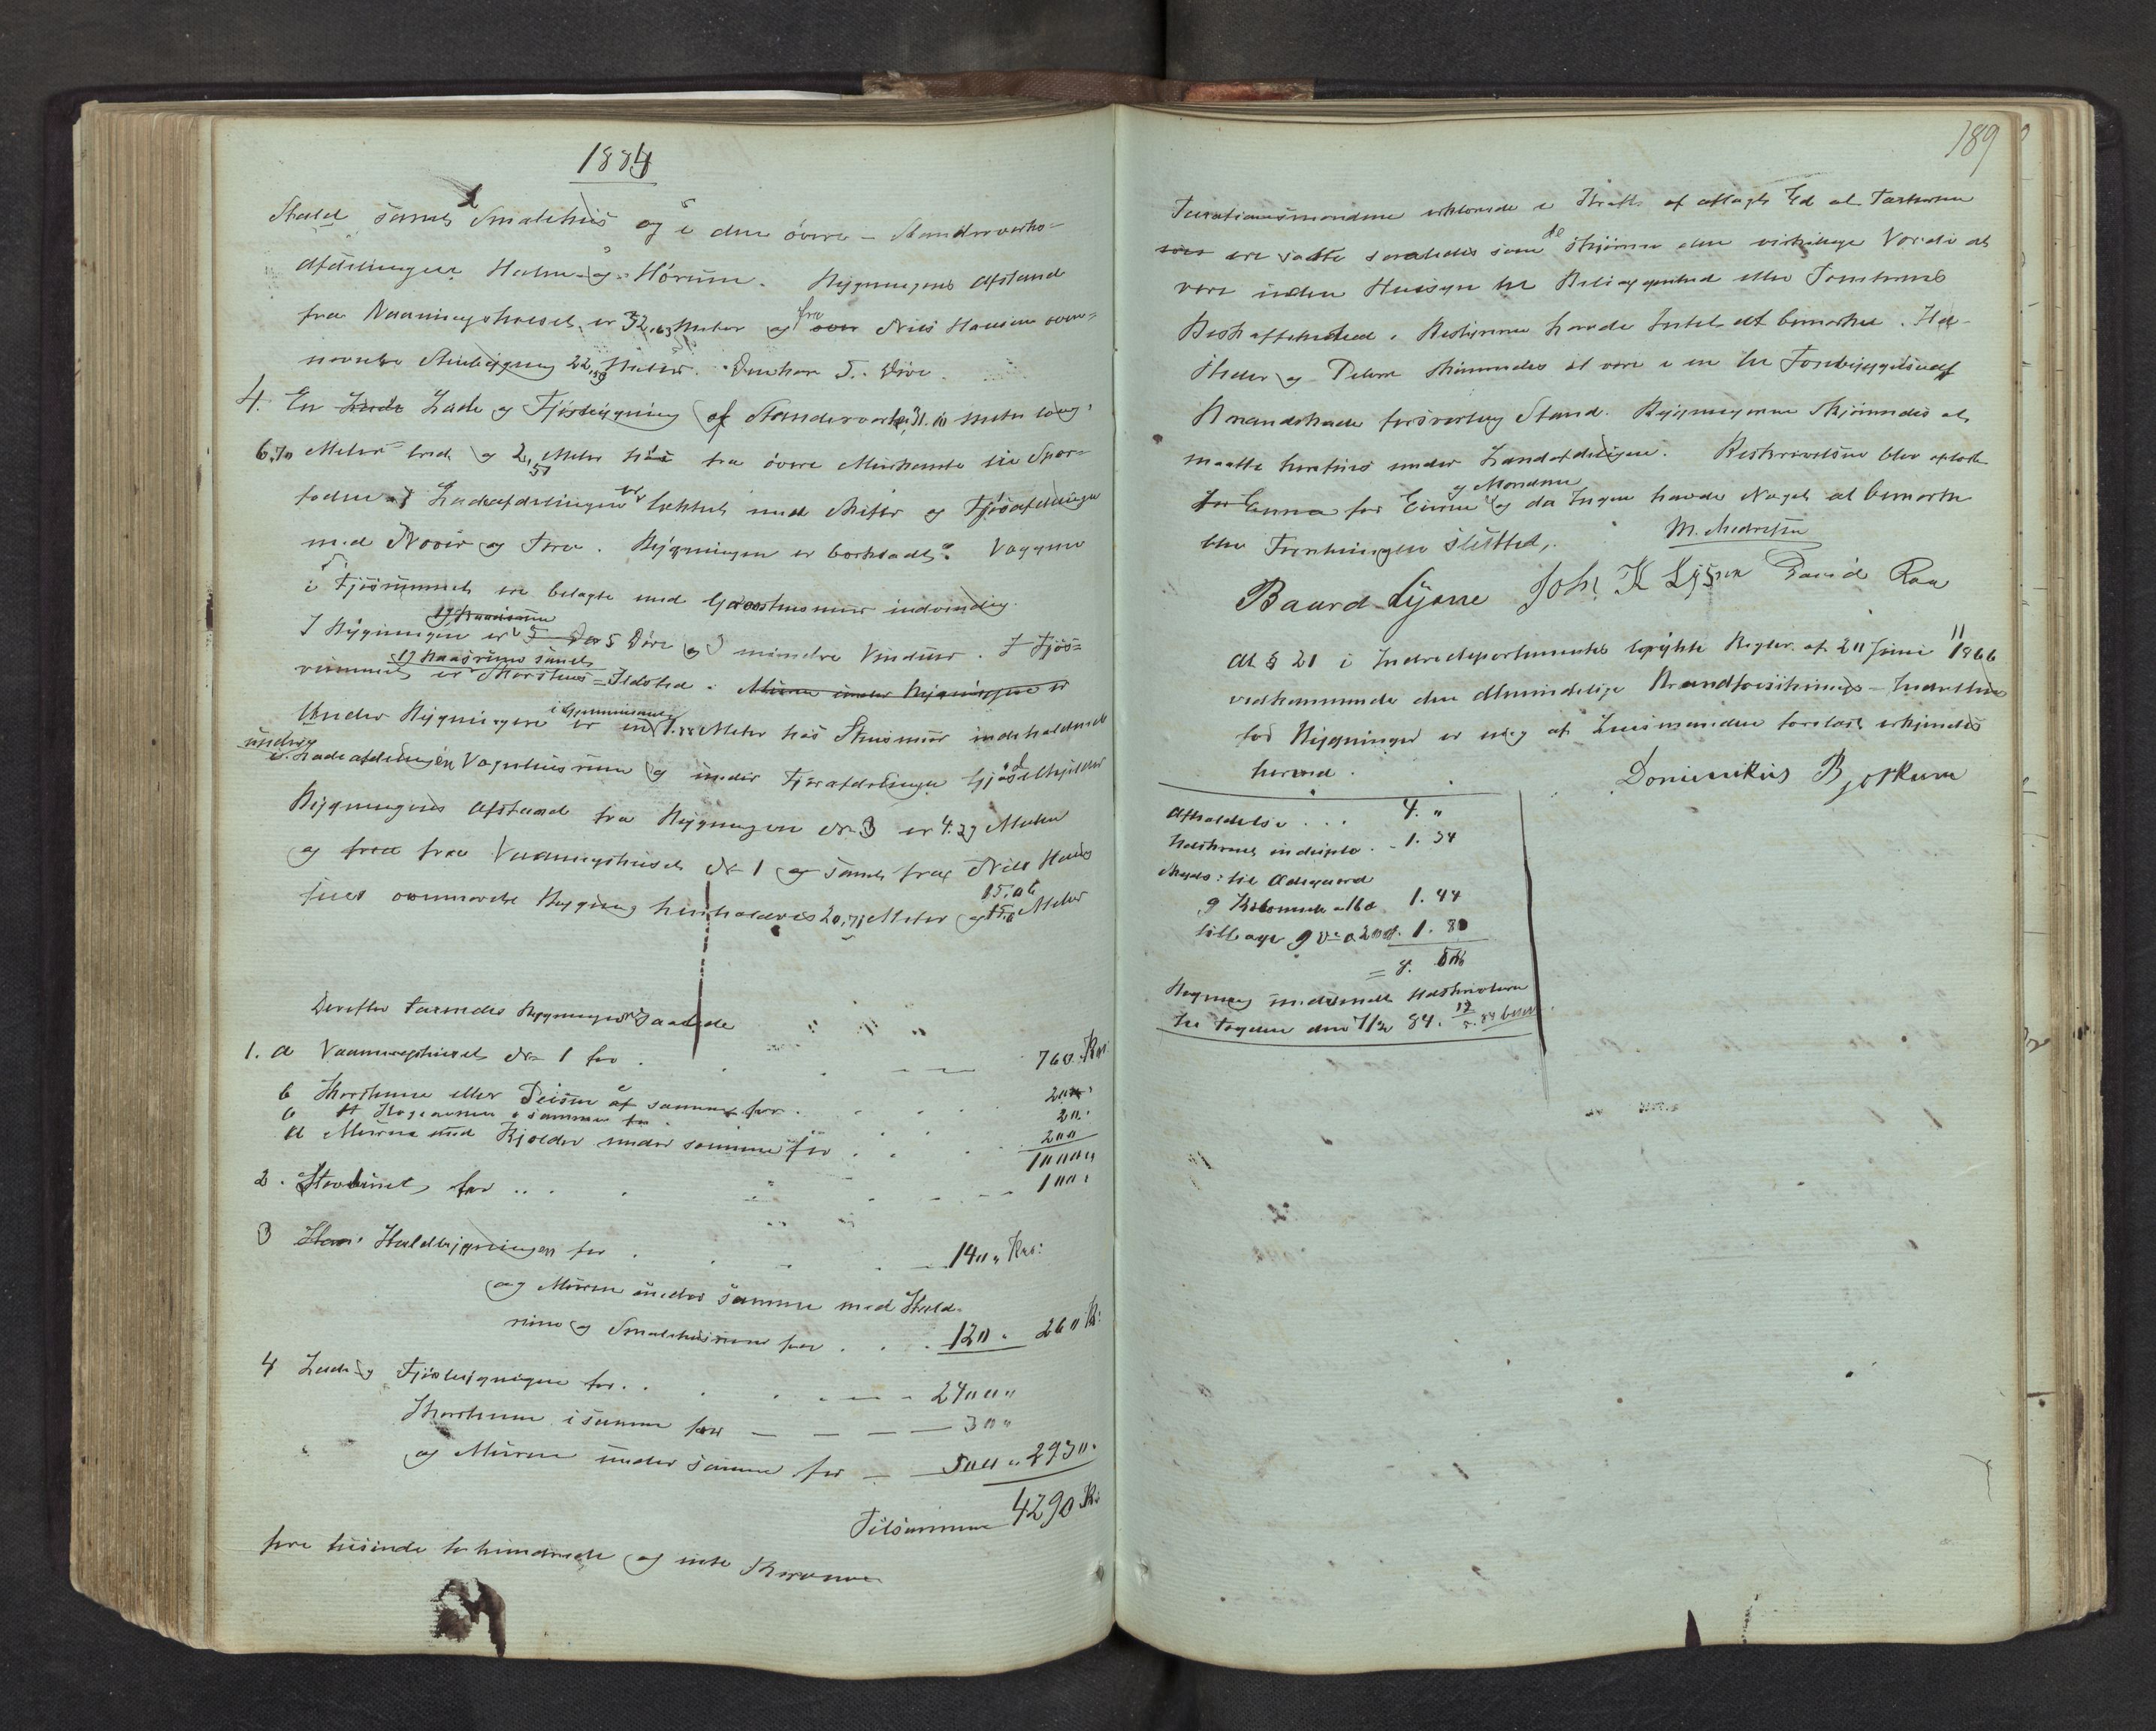 1884
Stald samt Smalehus og i den övre Standerverks-
afdelingen Halm og Hörum. Bygningens Afstand
fra Vaaningshuset er 32,63 Meter og fra Nils Hansens oven-
nævnte Stuebygning 22,59 Meter. Den har 5 Döre.
4. En Lade og Fjösbygning af Standerverk, 31.10 Meter lang,
6,70 Meter bred og 2,57 Meter höi fra övre Murkante til Spar-
foden. Ladeafdelingen er tækket med Skifer og Fjösafdelingen
med Næver og Törv. Bygningen er bordklædt. Væggene
i Fjösrummet ere belagte med Graastensmur indvendig.
I Bygningen er 5 Döre og 3 mindre Vinduer. I Fjös-
rummet er Skorstens-Ildsted. Murene under Bygningen er
Under Bygningen er en 1.88 Meter höi Stenmur indeholdende
i Ladeafdelingen Vognhusrum og under Fjösafdelingen Gjödselkjelder
Bygningens Afstand fra Bygningen No 3 er 4.39 Meter
og fra Vaaningshuset No 1 og samt fra Nils Han-
sens ovennævnte Bygning henholdsvis 20,71 Meter og 15,06 Meter
Derefter taxeredes Bygningerne saaledes
1. a Vaaningshuset No 1 for . 760. Kr.
b Skorstene eller Peisen af samme for . 20.
c Kogeovnen i samme for 20.
d Murene med Kjelder under samme for . 200
1000"
2. Stovhuset for .. 100.
3 Staldbygningen for . 140 " Kr:
og Murene under samme med Stald-
rum og Smalehusrum for . . . 120. 260 K:
4 Lade og Fjösbygningen for . . 2400 "
Skorstene i samme for — 30 "
og Murene under samme for — 500 " 2930.
Tilsammen 4290 Kr
fire tusinde to hundrede og nitti Kroner
189
Taxationsmændene erklærede i Kraft af aflagt Ed at Taxterne
ere satte saaledes som de skjönne den virkelige Værdi at
være uden Hensyn til Beliggenhed eller Tomternes
Beskaffenhed. Bestyrerne havde Intet at bemærke. Ild-
steder og Piber skjönnedes at være i en til Forebyggelse af
Brandskade forsvarlig Stand. Bygningerne skjönnedes at
maatte henföres under Landafdelingen. Beskrivelsen blev oplæst
for Eierne og Mændene og da Ingen havde Noget at bemærke
blev Forretningen sluttet.
M. Medresen
Baard Lysne Joh. K Lysne David Raa
At § 21 i Indredepartementets trykte Regler af 20 Juni 1866
vedkommende den Almindelige Brandforsikrings-Indretning
for Bygninger er mig af Lensmanden forelæst erkjendes
herved.
Dominikus Bjotkum
Afholdelse ... 4. "
Udskrivt indsigtn .. 1. 34
Skyds: til Ødegaard
9 Kilometer à 16 Ø 1. 44
tilbage 9 do a 20 Ø. 1. 80
= 8. 58
Regning meddeelt Udskriveren